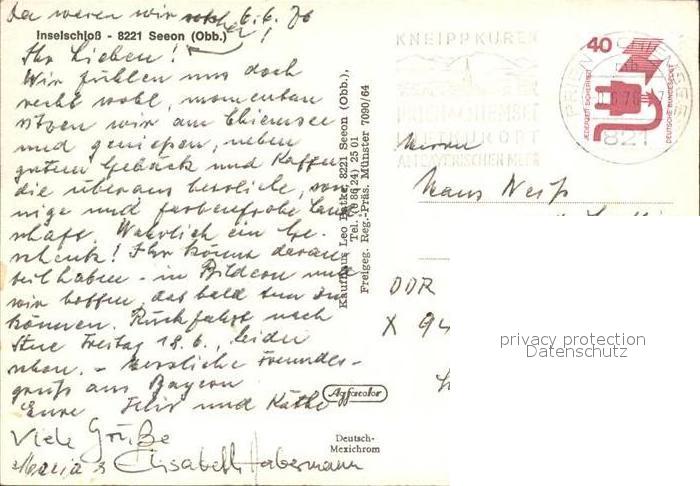 Da waren wir 6.6.76
Inselschloß - 8221 Seeon (Obb.)
Ihr Lieben!
Wir fühlen uns doch
recht wohl, momentan
sitzen wir am Chiemsee
und genießen, neben
gutem Gebäck und Kaffee
die überaus herrliche, son-
nige und farbenfrohe Land-
schaft. Wahrlich ein Ge-
schenk! Ihr könnt daran
teilhaben - in Bildern und
wir hoffen, das bald tun zu
können. Rückfahrt nach
Aue Freitag 18.6., leider
schon. - Herzliche Freundes-
gruß aus Bayern
Eure Felix und Käthe
Viele Grüße
Maria & Elisabeth Habermann
Kaufhaus Leo Patke, 8221 Seeon (Obb.),
Tel. (0 86 24) 25 01
Freigeg. Reg.-Präs. Münster 7090/64
Agfacolor
Deutsch-
Mexichrom
KNEIPPKUREN
PRIEN A CHIEMSEE
LUFTKURORT
AM BAYERISCHEN MEER
PRIEN A CHIEMSEE
821
40
JEDERZEIT SICHERHEIT
DEUTSCHE BUNDESPOST
Herrn
Hans
DDR
X 94
privacy protection
Datenschutz